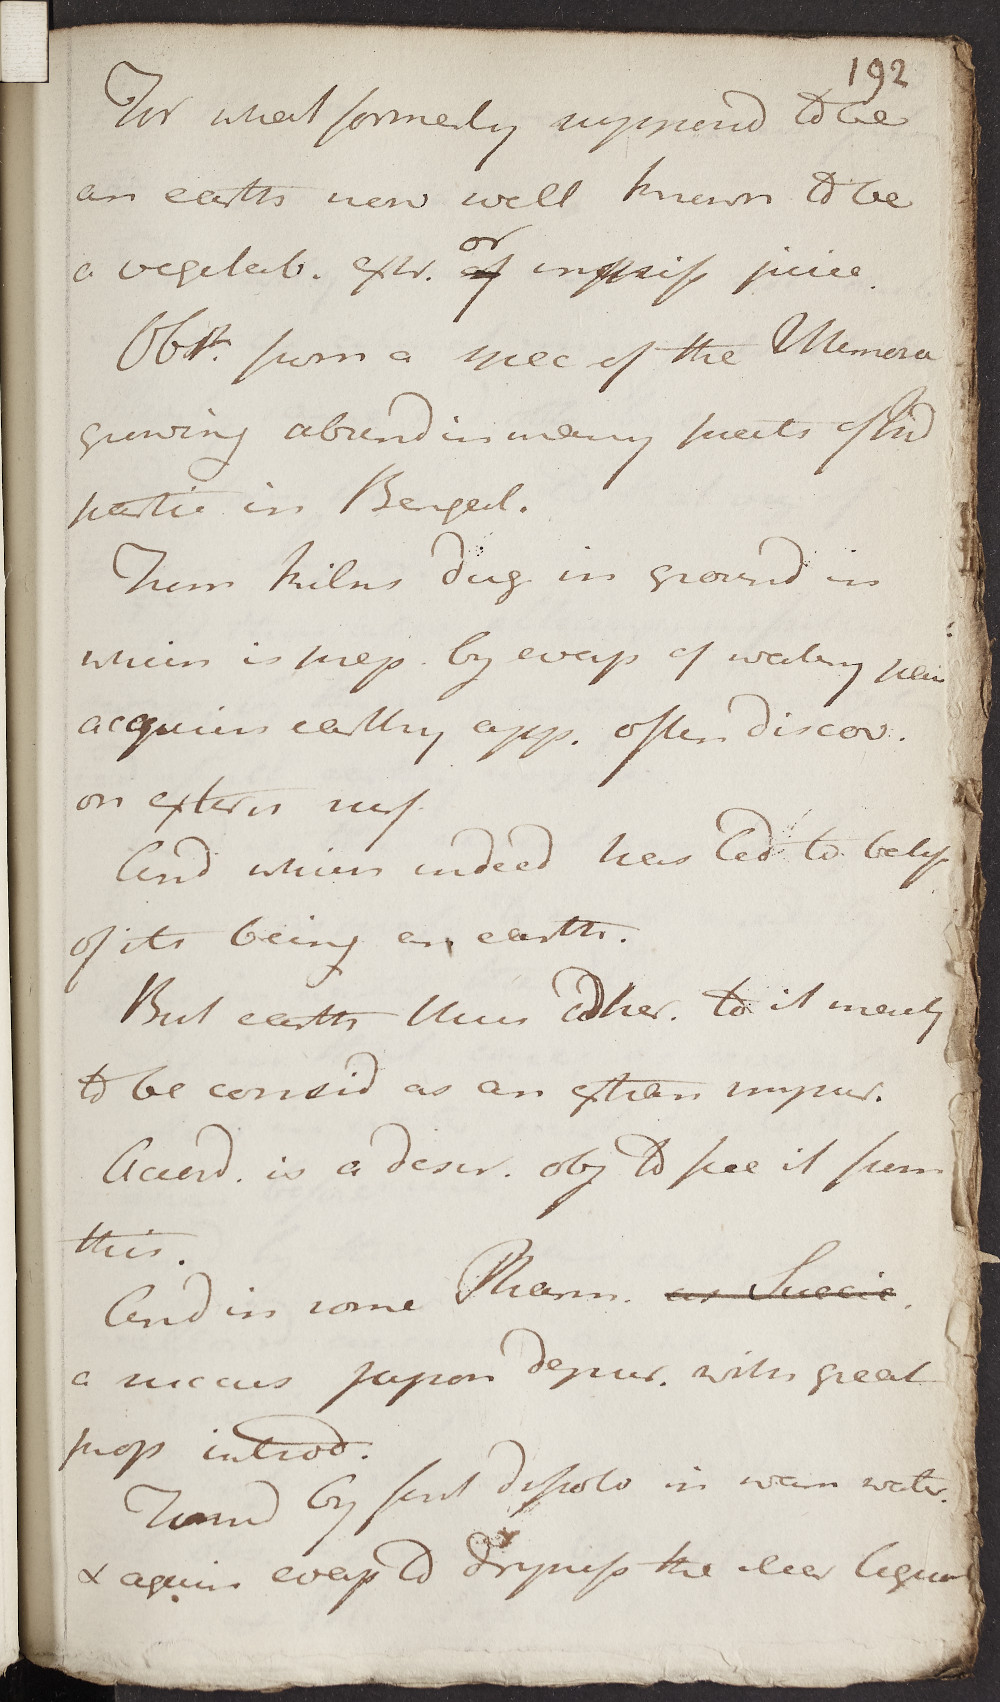 192
For what formerly supposed to be
an earth now well known to be
or
a vegetab. extr. of inspiss juice.
Obtd. from a spec of the Mimosa
growing abund in many parts of Ind
partic in Bengal.
From kilns dug in ground in
which is prep. by evap of watery
acquires earthy app. often discov.
on extern surf.
And which indeed has led to
of its being an earth.
But earth thus adher. to it merely
to be consid as an extran impur.
Accord. is a desir. obj to free it from
this.
And in some Pharm. as Suecic.
a succus japon depur. with great
prop introd.
Formd by first dissolv in warm water.
& again evap to dryness the clear liquor